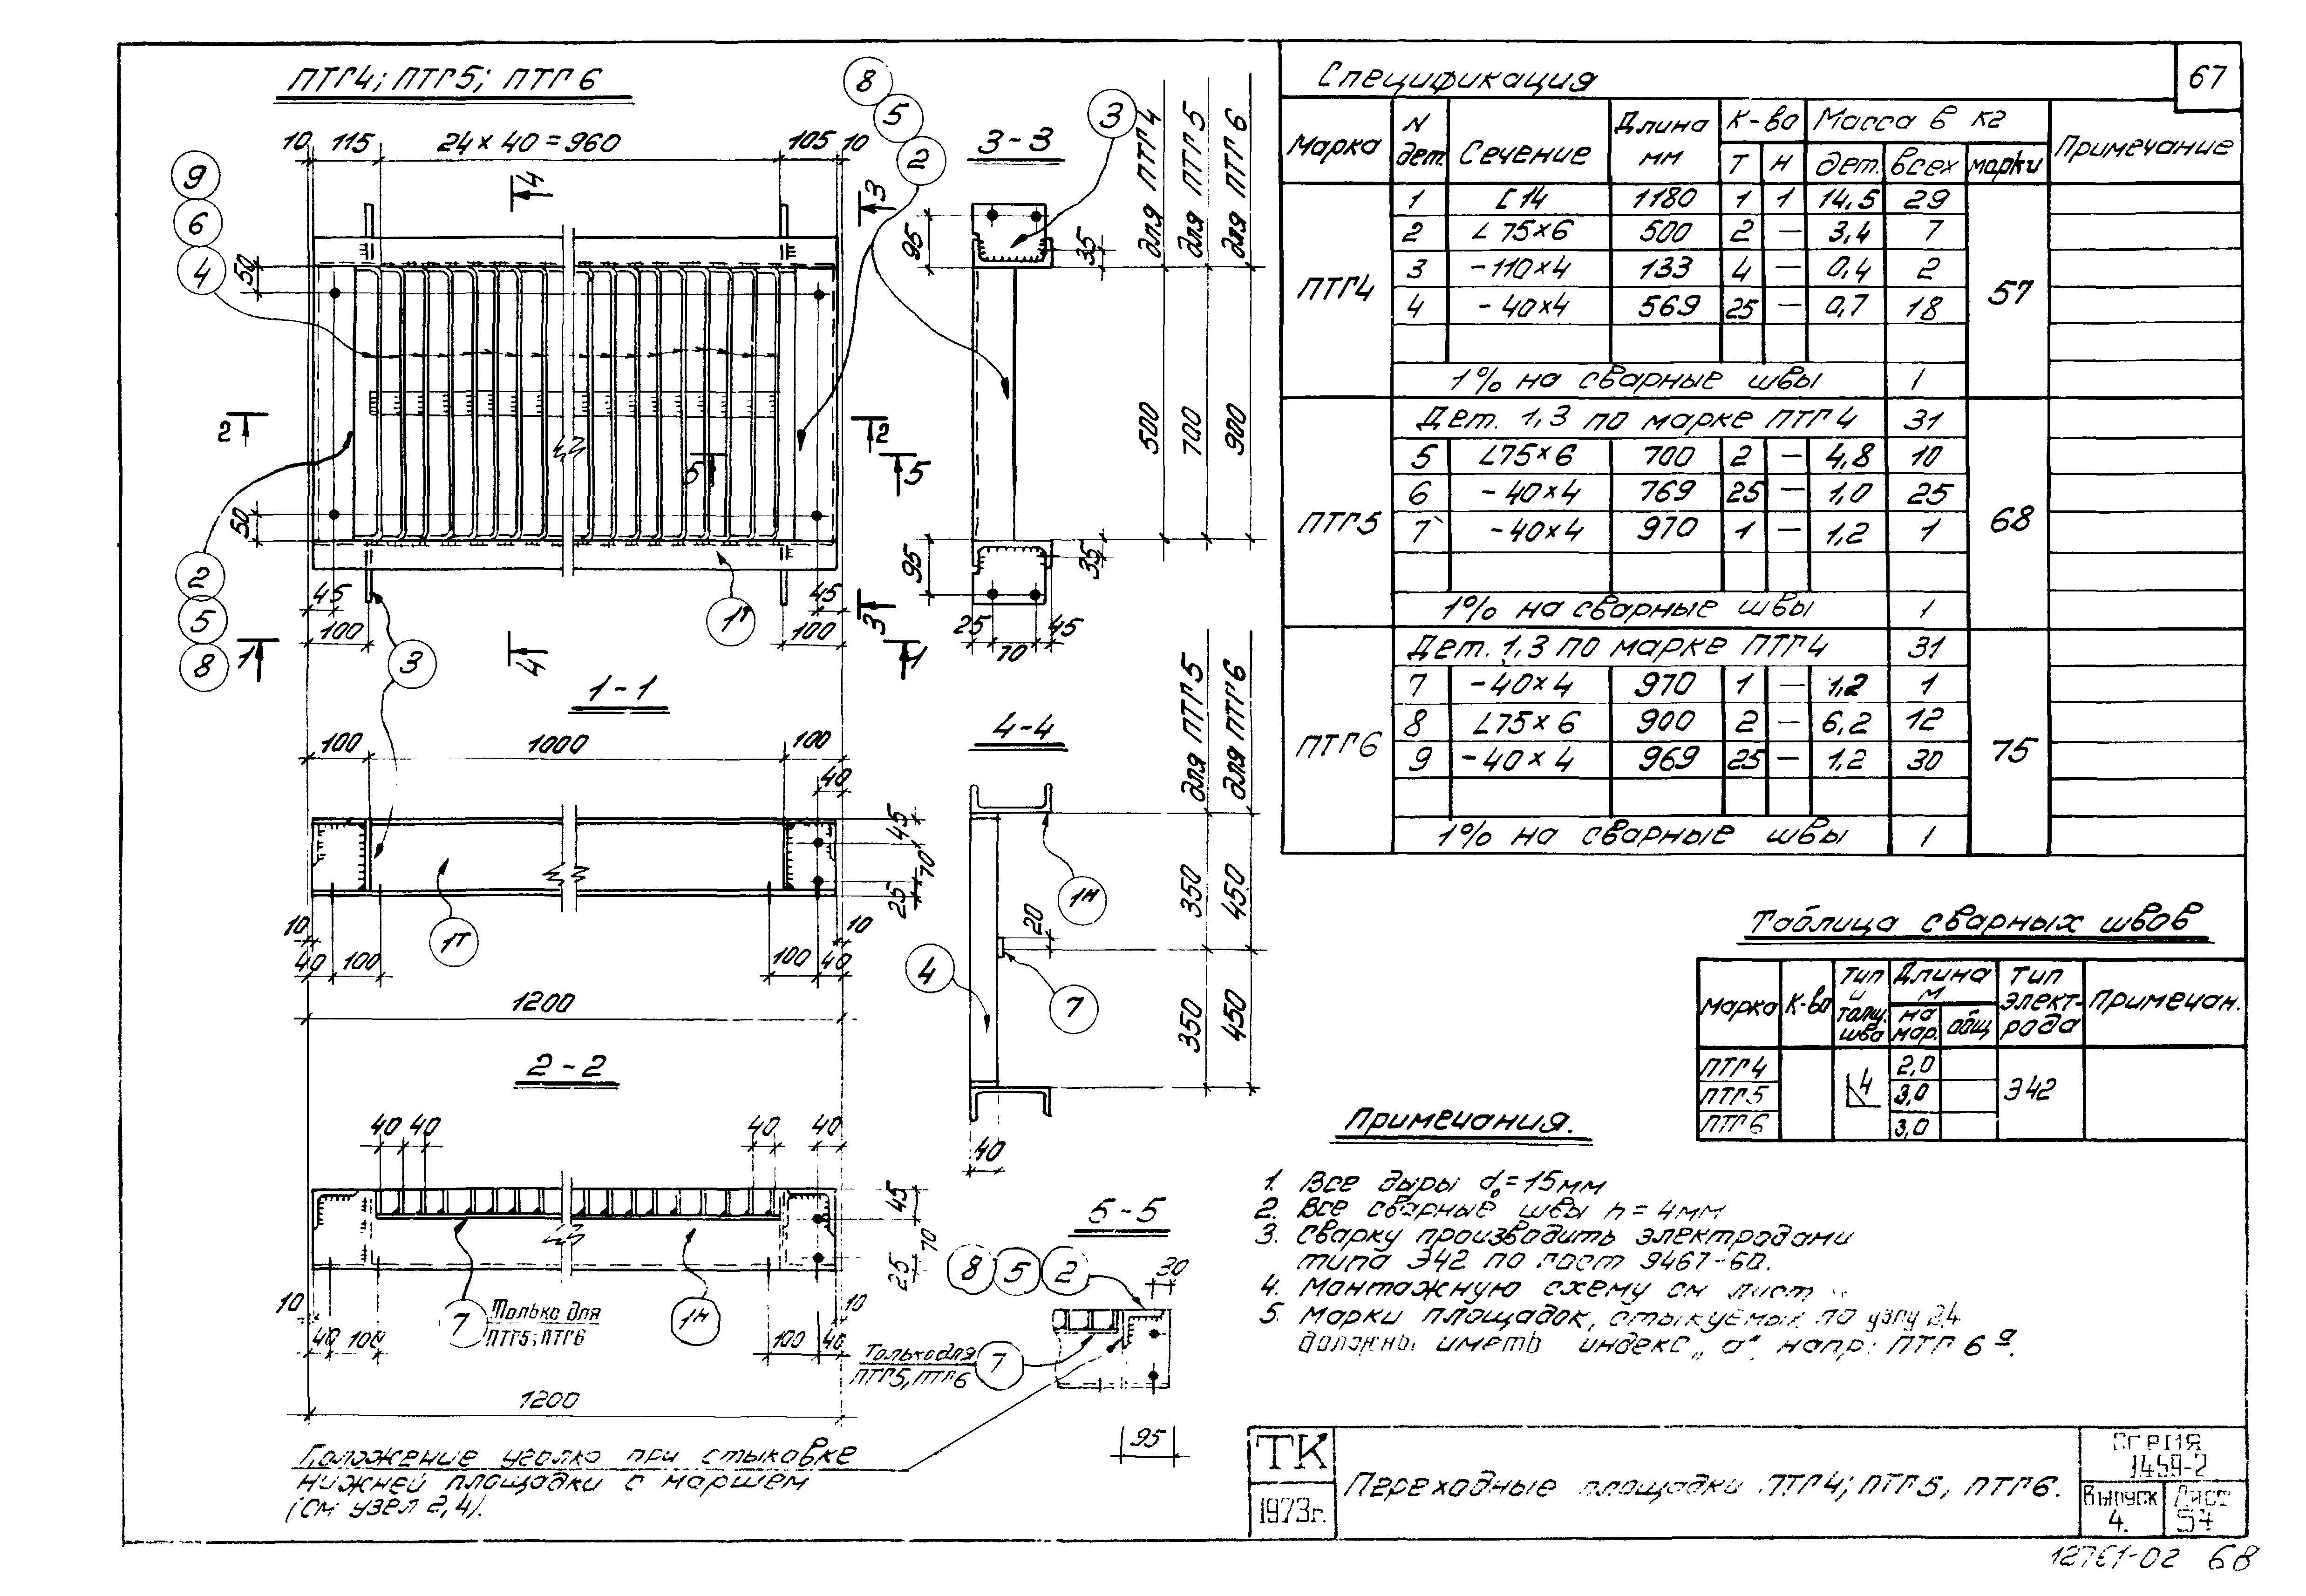 ПТГ4; ПТГ5; ПТГ6
10 115 24 x 40 = 960 105 10
9
6
4
8
5
2
50
50
4
4
3
3
2
2
5
5
1
1
2
5
8
3
1Т
45
100
45
100
3-3
3
для ПТГ4
для ПТГ5
для ПТГ6
95
35
500
700
900
95
35
25 70 45
1-1
100 1000 100
40
45
70
25
1Т
10
10
40 100
100 40
1200
4-4
для ПТГ5
для ПТГ6
1Н
20
4
7
350
450
350
450
40
2-2
40 40 40 40
45
70
25
10
10
7
Только для
ПТГ5; ПТГ6
1Н
40 100 100 40
1200
5-5
8 5 2
30
Только для
ПТГ5, ПТГ6
7
95
Положение уголка при стыковке
нижней площадки с маршем
(см узел 2,4).
Спецификация
67
Марка N дет. Сечение Длина мм К-во Масса в кг Примечание
Т Н дет. всех марки
ПТГ4
1 [14 1180 1 1 14,5 29
2 L 75×6 500 2 — 3,4 7
3 -110×4 133 4 — 0,4 2
57
4 - 40×4 569 25 — 0,7 18
1% на сварные швы 1
ПТГ5
Дет. 1,3 по марке ПТГ4 31
5 L75×6 700 2 — 4,8 10
6 - 40×4 769 25 — 1,0 25
68
7 -40×4 970 1 — 1,2 1
1% на сварные швы 1
ПТГ6
Дет. 1,3 по марке ПТГ4 31
7 -40×4 970 1 — 1,2 1
8 L75×6 900 2 — 6,2 12
75
9 -40×4 969 25 — 1,2 30
1% на сварные швы 1
Таблица сварных швов
Марка К-во Тип и толщ. шва Длина м Тип элект-рода Примечан.
на мар. общ
ПТГ4 2,0
ПТГ5 4 3,0 Э42
ПТГ6 3,0
Примечания.
1. Все дыры d₀=15мм
2. Все сварные швы h = 4мм
3. Сварку производить электродами
типа Э42 по гост 9467-60.
4. Монтажную схему см лист
5. Марки площадок, стыкуемых по узлу 2,4
должны иметь индекс „а“, напр: ПТГ 6а.
ТК
1973г.
Переходные площадки ПТГ4; ПТГ5, ПТГ6.
Серия
1.459-2
Выпуск
4.
Лист
57
12761-02 68